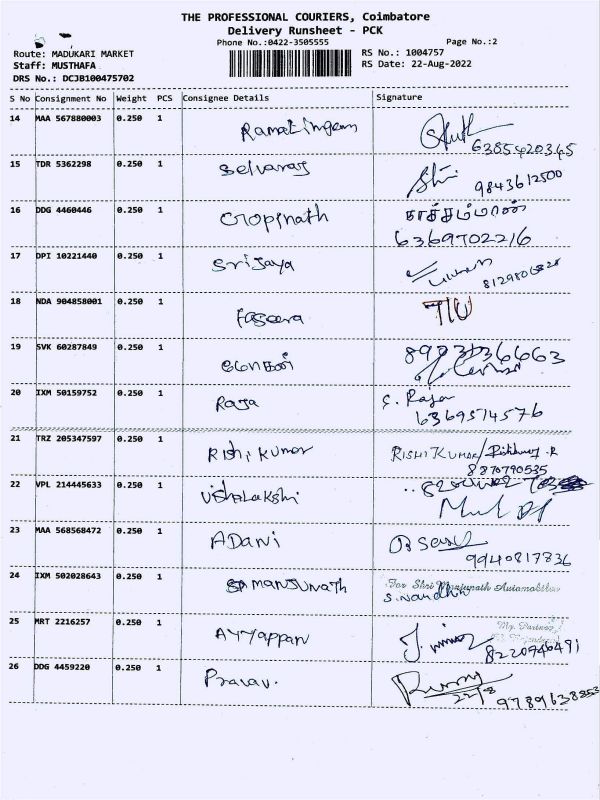 THE PROFESSIONAL COURIERS, Coimbatore
Delivery Runsheet - PCK
Phone No.:0422-3505555
Page No.:2
Route: MADUKARI MARKET
RS No.: 1004757
Staff: MUSTHAFA
RS Date: 22-Aug-2022
DRS No.: DCJB100475702
S No Consignment No Weight PCS Consignee Details Signature
14 MAA 567880003 0.250 1 Ramalingam
6385420345
15 TDR 5362298 0.250 1 Selvaraj
9843612500
16 DDG 4460446 0.250 1 Gopinath காச்சம்மாள்
6369702216
17 DPI 10221440 0.250 1 Srijaya
18 NDA 904858001 0.250 1 Faseera
19 SVK 60287849 0.250 1 மோகன்
20 IXM 50159752 0.250 1 Raja S. Raja
6369514576
21 TRZ 205347597 0.250 1 Rishi Kumar RISHI KUMAR/
8870790535
22 VPL 214445633 0.250 1 Vishalakshi
23 MAA 568568472 0.250 1 ADani
9940817836
24 IXM 502028643 0.250 1 Manjunath For Shri Manjunath Automobiles
S. Nandhin
25 MRT 2216257 0.250 1 Ayyappan Mg. Partner
8220946491
26 DDG 4459220 0.250 1
22/8 9789638853